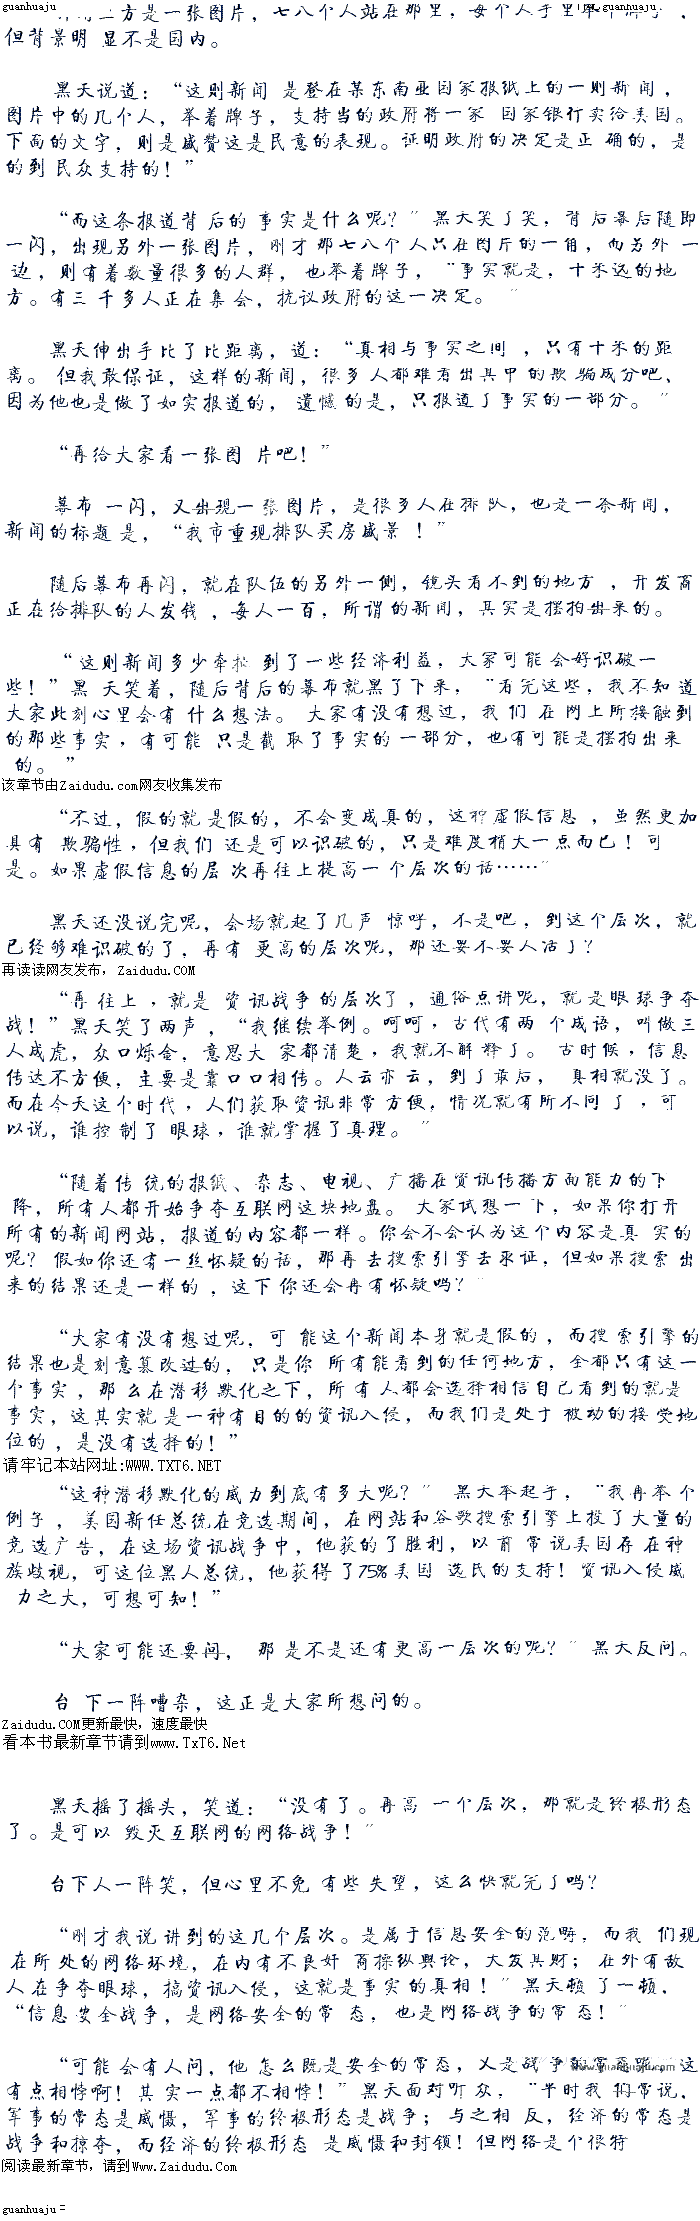 guanhuaju
guanhuaju.
方是一张图片，七八个人站在那里，每个人手里
但背景明 显不是国内。
黑天说道：“这则新闻 是登在某东南亚国家报纸上的一则新 闻，
图片中的几个人，举着牌子，支持当的政府将一家 国家银行卖给美国。
下面的文字，则是盛赞这是民意的表现。证明政府的决定是正 确的，是
的到 民众支持的！”
“而这条报道背 后的 事实是什么呢？” 黑天笑了笑，背 后幕后随即
一闪，出现另外一张图片，刚才那七八个 人只在图片的一角，而另外 一
边，则有着数量很多的人群， 也举着牌子，“事实就是，十米远的地
方。有三 千多人正在集会，抗议政府的这一决定。 ”
黑天伸出手比了比距离，道：“真相与事实之间 ，只有十米的距
离。 但我敢保证，这样的新闻，很多 人都难看出其中的欺 骗成分吧，
因为他也是做了如实报道的， 遗憾 的是，只报道了事实的一部分。 ”
“再给大家看一张图 片吧！”
幕布 一闪，又出现一张图片，是很多人在排 队，也是一条新闻，
新闻的标题 是，“我市重现排队买房盛景 ！”
随后幕布再闪，就在队伍的另外一侧，镜头看不到的地方 ，开发商
正在给排队的人发钱 ，每人一百，所谓 的新闻，其实是摆拍出来的。
“这则新闻多少牵扯 到了一些经济利益，大家可能 会好识破一
些！”黑 天笑着，随后背后的幕布就黑了下来，“看完这些，我不知 道
大家此刻心里会有 什么想法。 大家有没有想过，我 们 在 网上所接触到
的那些事实，有可能 只是截 取了事实的一部分，也有可能是摆拍出来
的。 ”
该章节由Zaidudu.com网友收集发布
“不过，假的就 是假的，不会变成真的，这种虚假信息 ，虽然更加
具有 欺骗性，但我们 还是可以识破的，只是难度稍大一点而已！可
是。如果虚假信息的层 次再往上提高一 个层次的话……”
黑天还没说完呢，会场就起了几声 惊呼，不是吧，到这个层次，就
已经够难识破的了，再有 更高的层次呢，那还要不要人活了？
再读读网友发布，Zaidudu.COM
“再 往上 ，就是 资讯战争的层次了，通俗点讲呢，就 是眼球争夺
战！”黑天笑了两声 ，“我继续举例。呵呵，古代有两 个成语，叫做三
人成虎，众口烁金，意思大 家都清楚，我就不解 释了。 古时候，信息
传达不方便，主要是靠口口相传。人云亦 云，到了最后， 真相就没了。
而在今天这个时代，人们获取资讯非常 方便，情况就有所不同 了 ，可
以说，谁控制了 眼球，谁就掌握了真理。 ”
“随着传 统的报纸、杂志、电视、广播在资讯传播方面能力的下
降，所有人都开始争夺互联网这块地盘。 大家试想一 下，如果你打开
所有的新闻网站，报道的内容都一样。你会不会认为这个内容是真 实的
呢？ 假如你还有一丝怀疑的话，那再 去搜索引擎去求证，但如果搜索 出
来的结果还是一样的 ，这下 你还会再有怀疑吗？”
“大家有没有想过呢，可 能这个新闻本身就是假的，而搜 索引擎的
结果也是刻意篡改过的， 只是你 所有能看到的任何地方，全都只有这一
个事实，那 么在潜移 默化之下，所 有 人都会选择相信自己看到的就是
事实，这其实就 是一种有目的的资讯入侵，而我们是处于 被动的接 受地
位的 ，是没有选择的！”
请牢记本站网址:WWW.TXT6.NET
“这种潜移默化的威力到底有多大呢？” 黑天举起手，“我再举 个
例子 ， 美国新任总统在竞选期间，在网站和谷歌搜索引擎上投了大量的
竞 选广告，在这场资讯战争中，他获的了胜利，以 前 常 说美国存 在种
族歧视，可这位黑人总统，他获得 了75%美国 选民的支持！资讯入侵威
力之大，可想可知！”
“大家可能还要问， 那 是不是还有更高一层次的呢？” 黑天反问。
台 下一阵嘈杂，这正是大家所想问的。
Zaidudu.COM更新最快，速度最快
看本书最新章节请到www.TxT6.Net
黑天摇了摇头，笑道：“没有了。再高 一个层次，那就是终极形态
了。是可以 毁灭互联网的网络战争！”
台下人一阵笑，但心里不免 有些 失望，这么快就完了吗？
“刚才我说 讲到的这几个层次。是属于信息安全的范畴，而我 们现
在所 处的网络环境，在内有不良奸 商操纵舆论，大发其财；在外有敌
人 在争夺眼球，搞资讯入侵，这就是事实的真相！”黑天顿 了一顿，
“信息 安全战争，是网络安全的常 态，也是网络战争的常 态！”
“可能 会有人问，他 怎么既是安全的常态，又是战 争的常态呢，这
www.guanhuaju.com
有点相悖啊！其 实一点都不相悖！”黑天面对听 众，“平时我 们常说，
军事的常态是威慑，军事的终极形态是战争；与之相 反，经济的常态是
战争和掠夺，而经济的终极形态 是威慑和封锁！但网络是个很特
阅读最新章节，请到Www.Zaidudu.Com
guanhuaju =